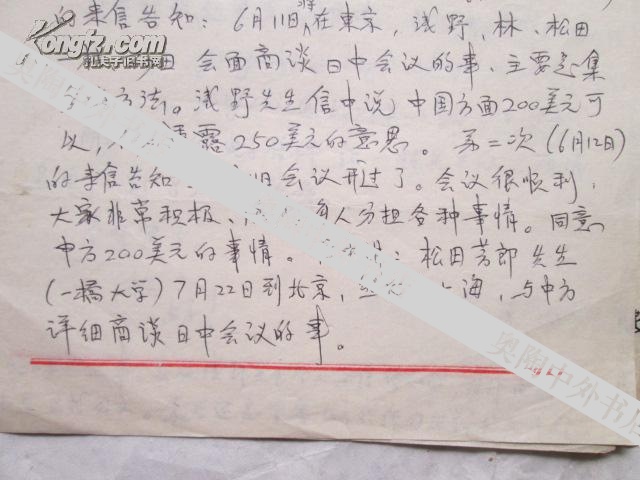 的来信告知：6月11日在東京，浅野、林、松田
会面商谈日中会议的事，主要是集
方法。浅野先生信中说中国方面200美元可
以，露250美元的意思。第二次（6月12日）
的来信告知会议开过了。会议很顺利，
大家非常积极、人分担各种事情。同意
中方200美元的事情。松田芳郎先生
（一橋大学）7月22日到北京，海，与中方
详细商谈日中会议的事。
kongfz.com
孔夫子旧书网
奥陶中外书店